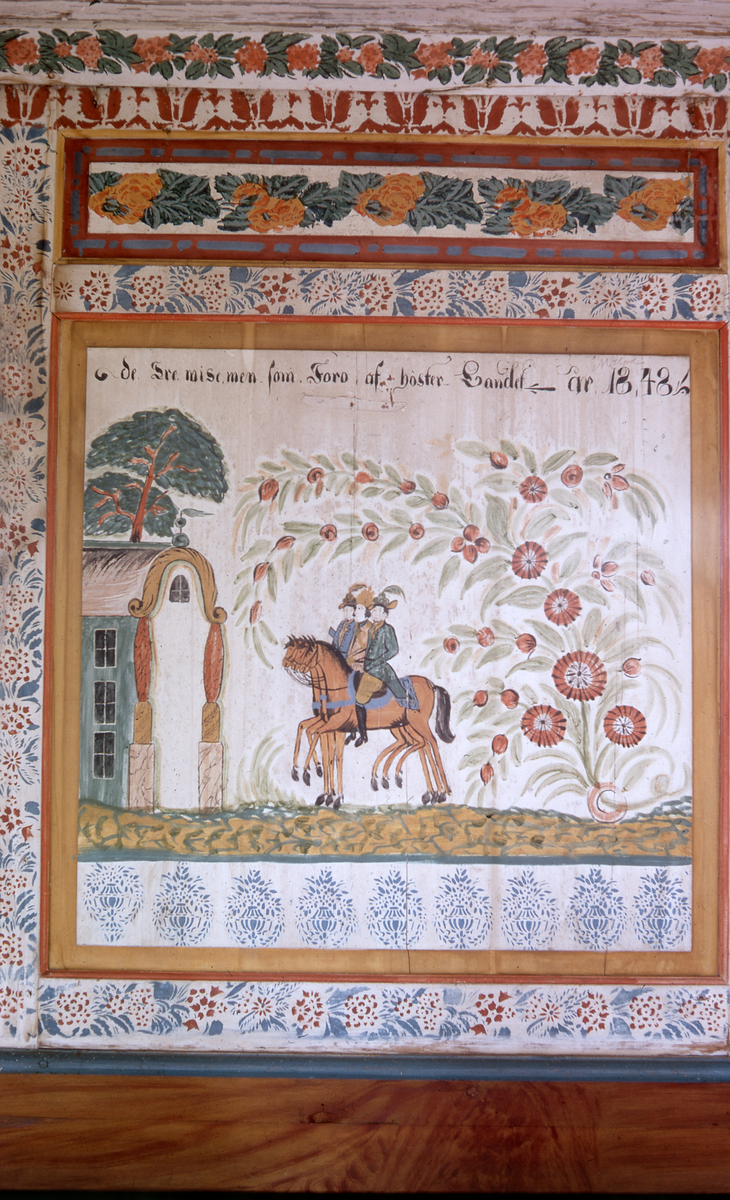 de Tre mise.men. som. Foro. af. höster. Landet är 18,48